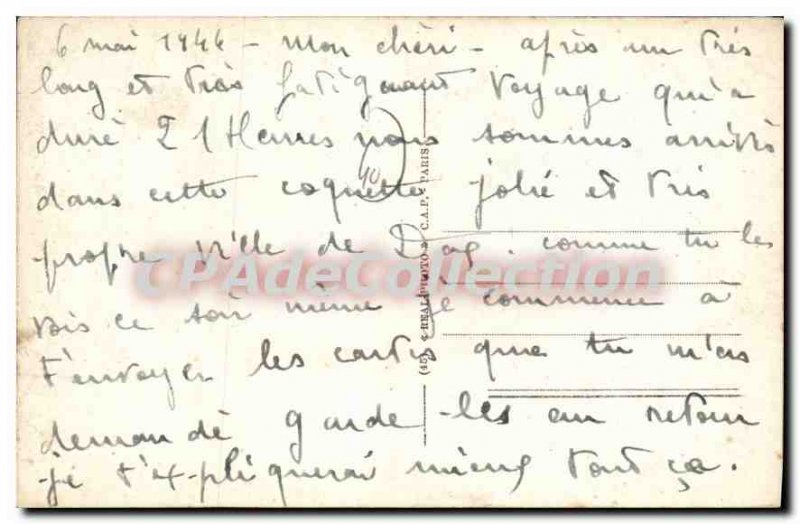 6 mai 1944 - Mon chéri - après un très
long et très fatiguant voyage qu'a
duré 21 Heures nous sommes arrivés
dans cette coquette jolie et très
propre ville de Dax. comme tu les
vois ce soir même je commence à
t'envoyer les cartes que tu m'as
demandé garde-les au retour
je t'ex-pliquerai mieux tout ça.
40
(45) REAL-PHOTO C.A.P. PARIS
CPAdeCollection